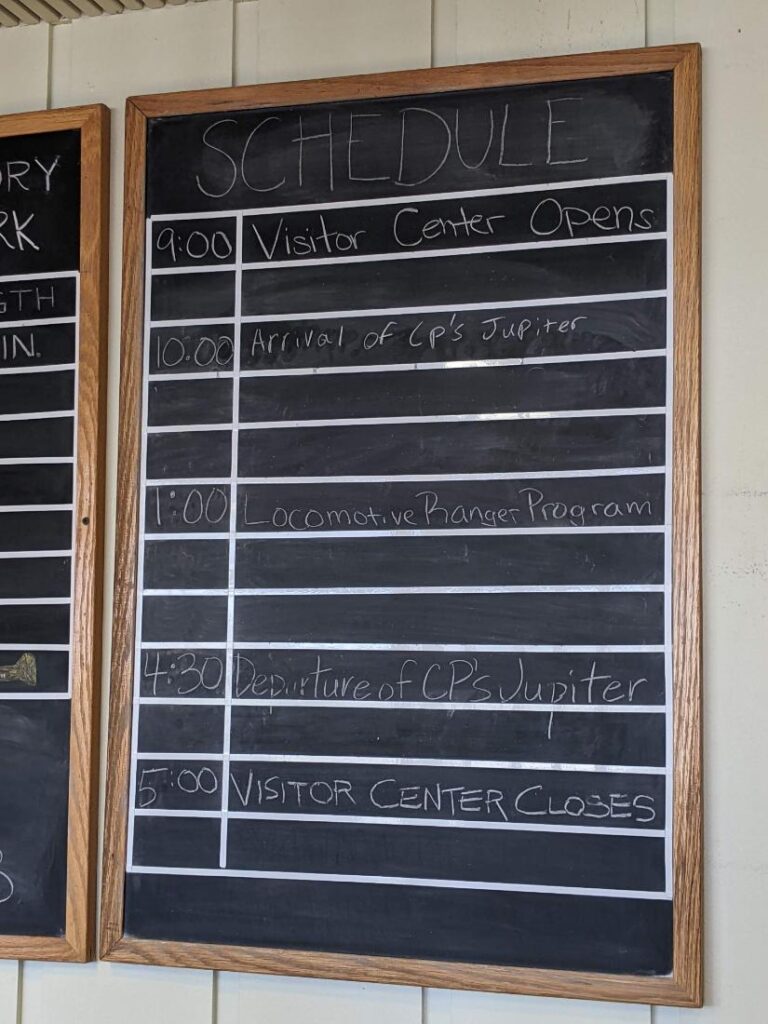 ORY
RK
GTH
IN.
SCHEDULE
9:00 Visitor Center Opens
10:00 Arrival of Cp's Jupiter
1:00 Locomotive Ranger Program
4:30 Departure of CP's Jupiter
5:00 VISITOR CENTER CLOSES